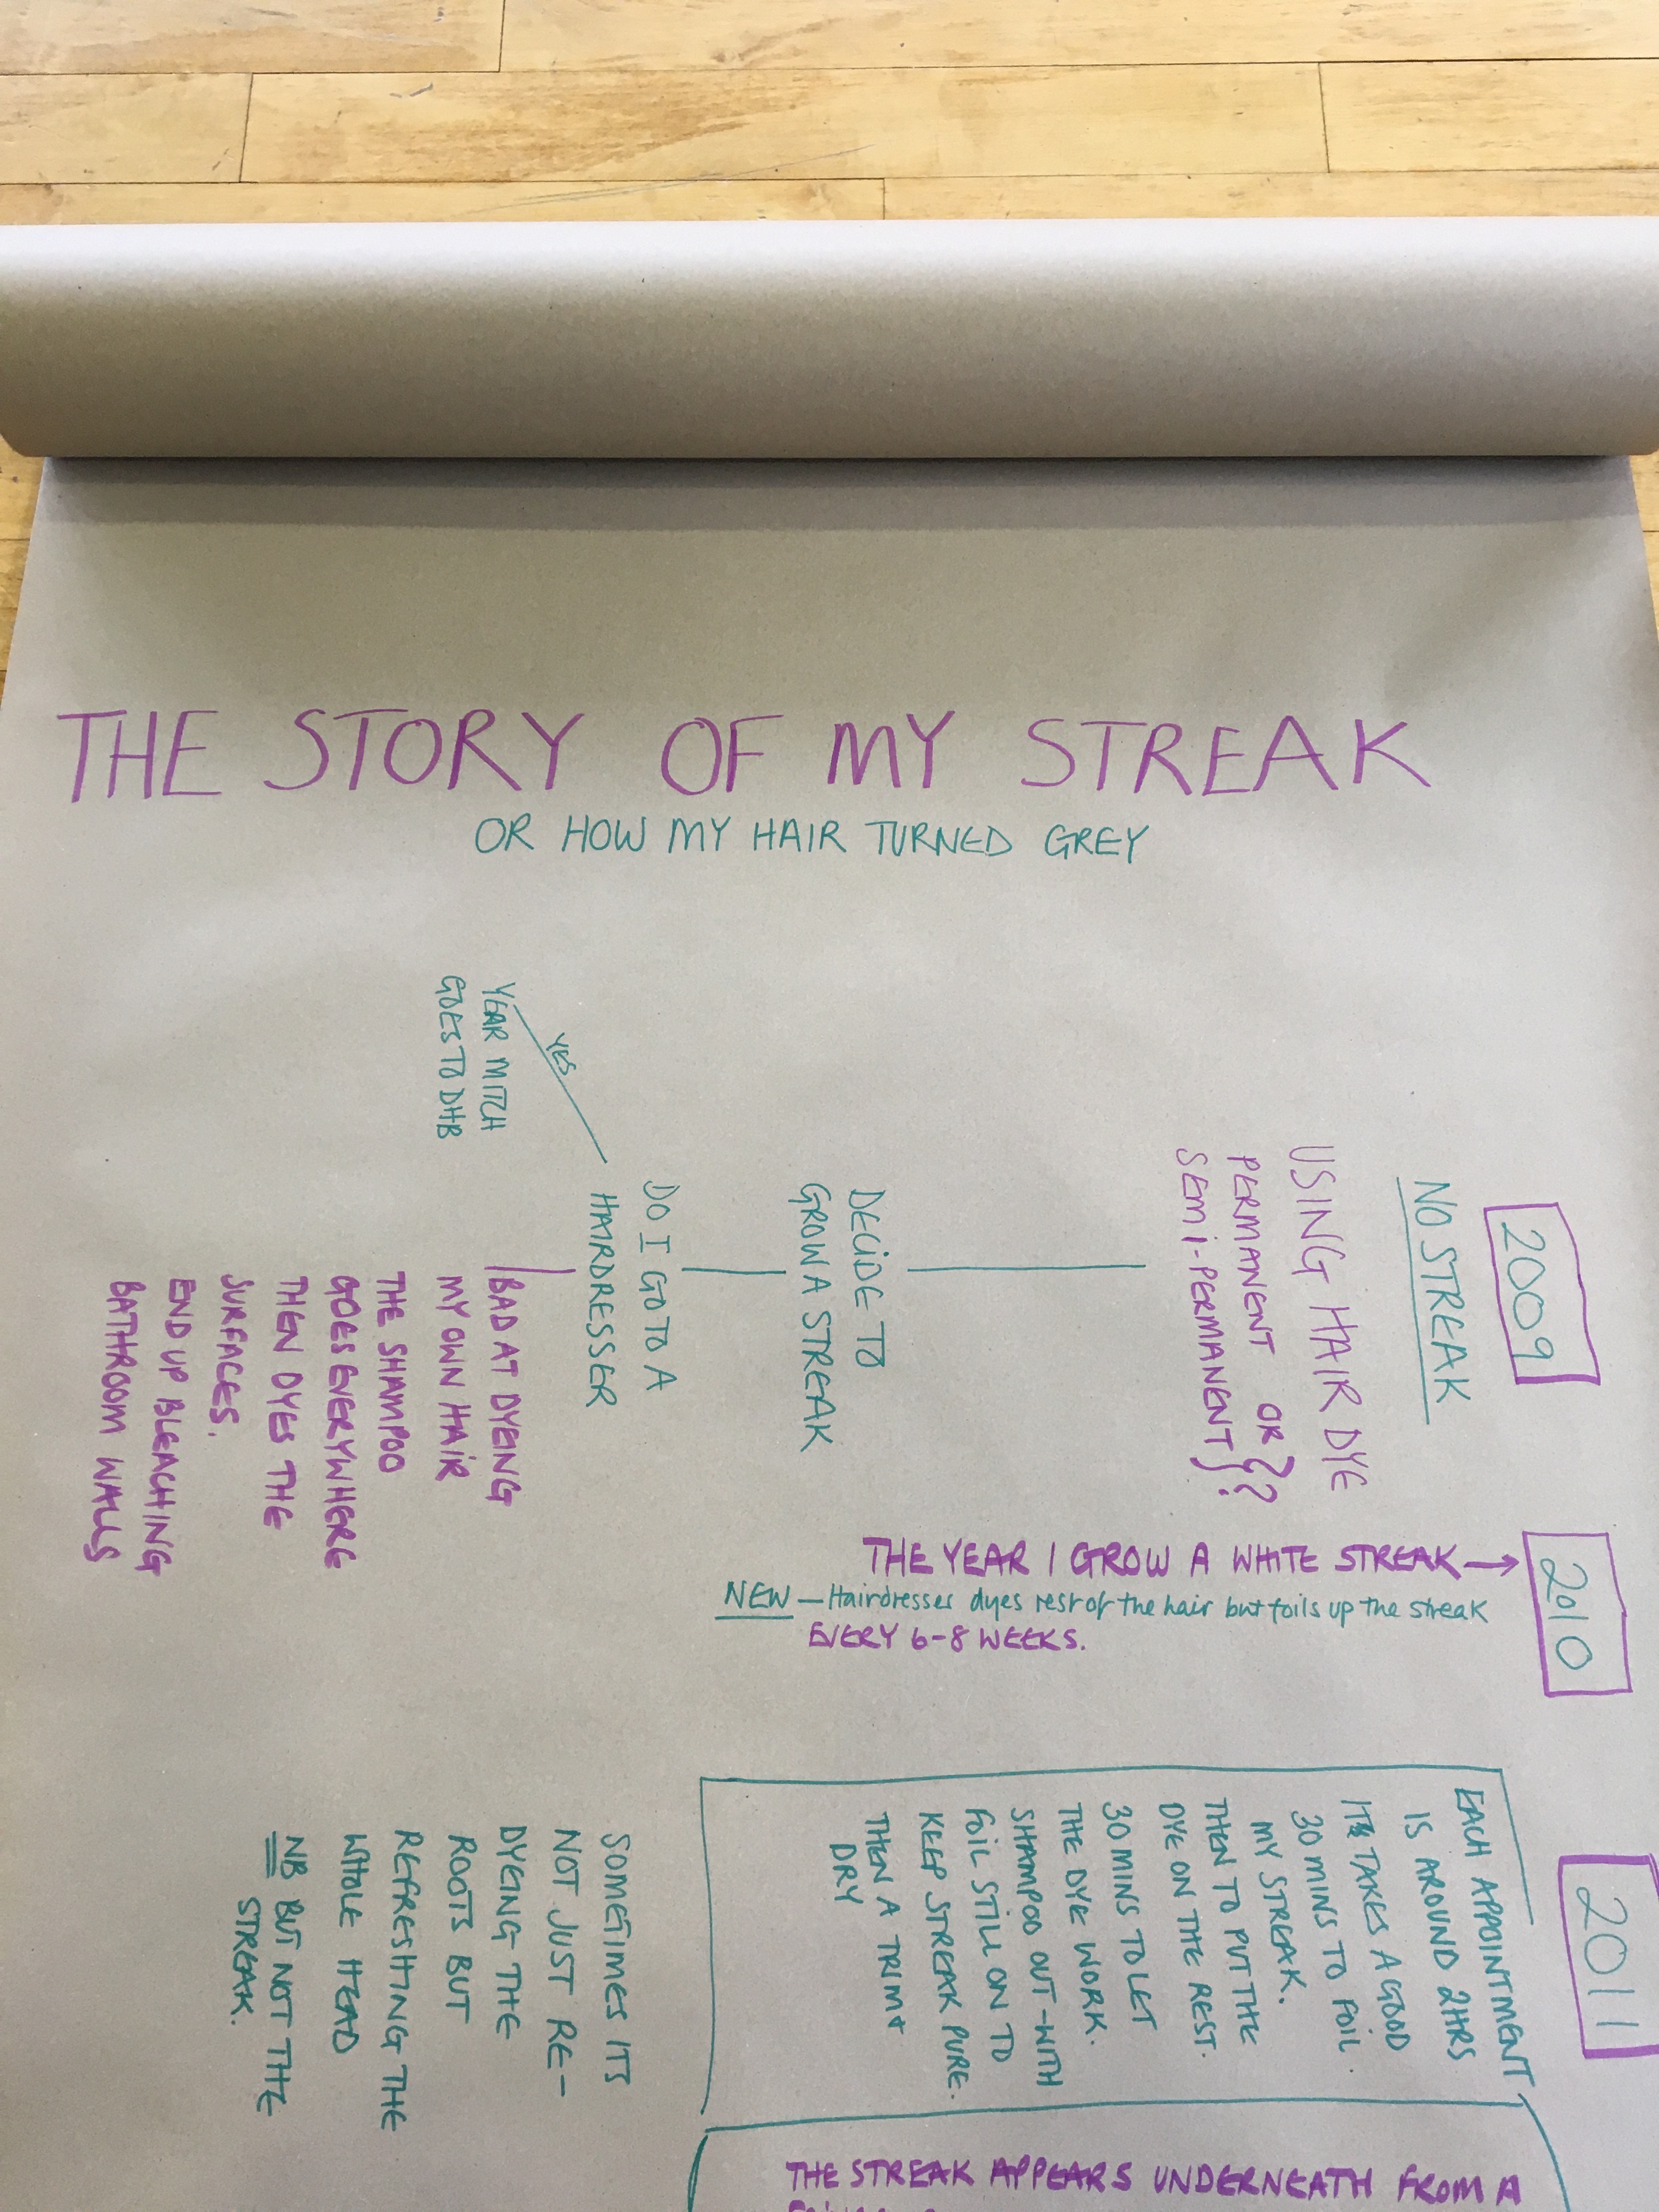 THE STORY OF MY STREAK
OR HOW MY HAIR TURNED GREY
2009
NO STREAK
USING HAIR DYE
PERMANENT OR ?
SEMI-PERMANENT ?
DECIDE TO
GROW A STREAK
DO I GO TO A
HAIRDRESSER
YES
YEAR MITCH
GOES TO DHB
BAD AT DYEING
MY OWN HAIR
THE SHAMPOO
GOES EVERYWHERE
THEN DYES THE
SURFACES.
END UP BLEACHING
BATHROOM WALLS
2010
THE YEAR I GROW A WHITE STREAK →
NEW — Hairdresser dyes rest of the hair but foils up the streak
EVERY 6-8 WEEKS.
2011
EACH APPOINTMENT
IS AROUND 2HRS
IT TAKES A GOOD
30 MINS TO FOIL
MY STREAK.
THEN TO PUT THE
DYE ON THE REST.
30 MINS TO LET
THE DYE WORK.
SHAMPOO OUT-WITH
FOIL STILL ON TO
KEEP STREAK PURE.
THEN A TRIM &
DRY
SOMETIMES ITS
NOT JUST RE-
DYEING THE
ROOTS BUT
REFRESHING THE
WHOLE HEAD
NB BUT NOT THE
STREAK.
THE STREAK APPEARS UNDERNEATH FROM A